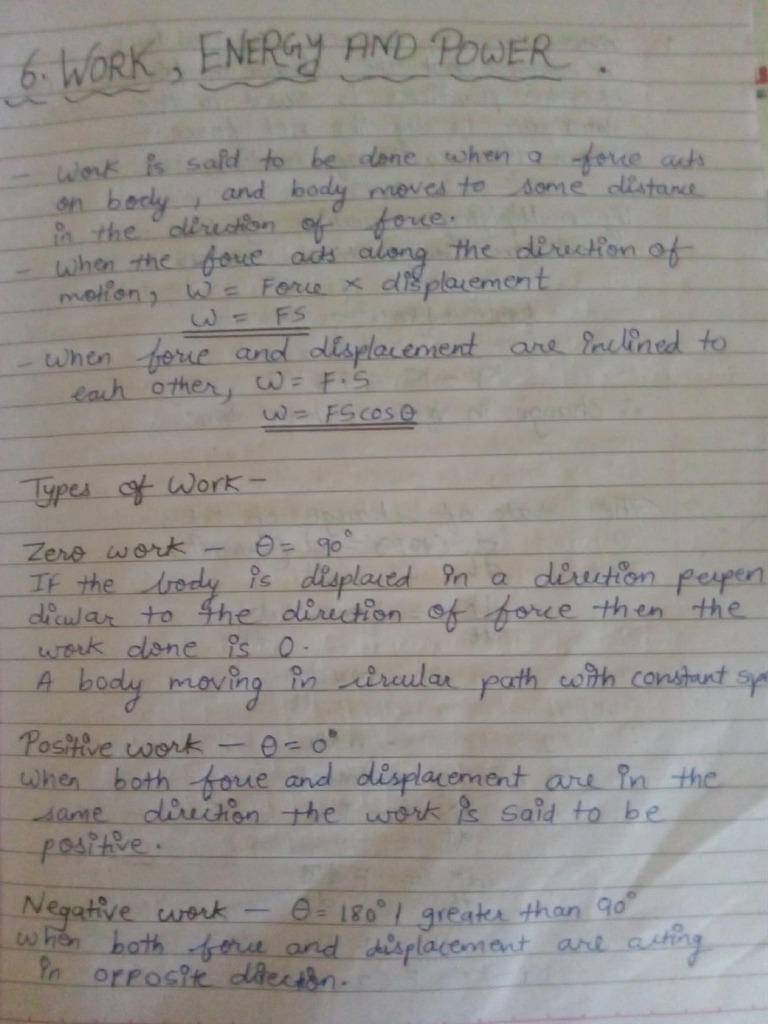 6. WORK, ENERGY AND POWER.
- Work is said to be done when a force acts
on body, and body moves to some distance
in the direction of force.
- When the force acts along the direction of
motion, W = Force × displacement
W = FS
- When force and displacement are inclined to
each other, W = F.S
W = FScosθ
Types of Work -
Zero work - θ = 90°
If the body is displaced in a direction perpen
dicular to the direction of force then the
work done is 0.
A body moving in circular path with constant sp
Positive work - θ = 0°
When both force and displacement are in the
same direction the work is said to be
positive.
Negative work - θ = 180° / greater than 90°
When both force and displacement are acting
in opposite direction.